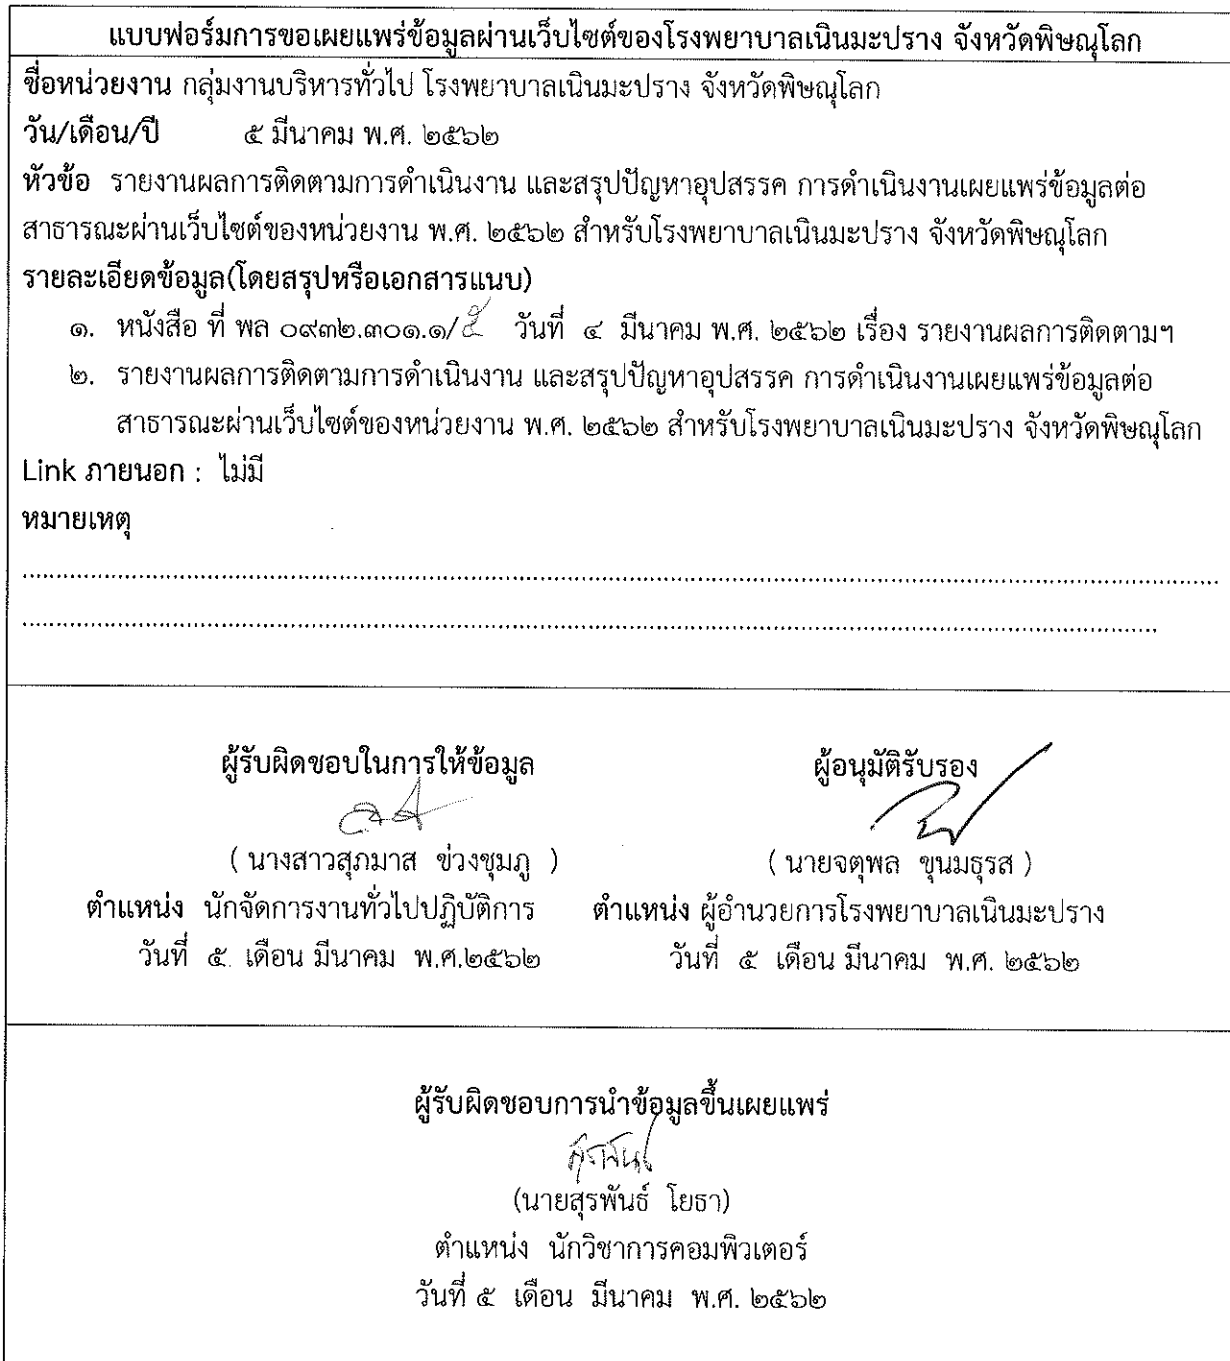 แบบฟอร์มการขอเผยแพร่ข้อมูลผ่านเว็บไซต์ของโรงพยาบาลเนินมะปราง จังหวัดพิษณุโลก
ชื่อหน่วยงาน กลุ่มงานบริหารทั่วไป โรงพยาบาลเนินมะปราง จังหวัดพิษณุโลก
วัน/เดือน/ปี ๕ มีนาคม พ.ศ. ๒๕๖๒
หัวข้อ รายงานผลการติดตามการดำเนินงาน และสรุปปัญหาอุปสรรค การดำเนินงานเผยแพร่ข้อมูลต่อ
สาธารณะผ่านเว็บไซต์ของหน่วยงาน พ.ศ. ๒๕๖๒ สำหรับโรงพยาบาลเนินมะปราง จังหวัดพิษณุโลก
รายละเอียดข้อมูล(โดยสรุปหรือเอกสารแนบ)
๑. หนังสือ ที่ พล ๐๙๓๒.๓๐๑.๑/ วันที่ ๔ มีนาคม พ.ศ. ๒๕๖๒ เรื่อง รายงานผลการติดตามฯ
๒. รายงานผลการติดตามการดำเนินงาน และสรุปปัญหาอุปสรรค การดำเนินงานเผยแพร่ข้อมูลต่อ
สาธารณะผ่านเว็บไซต์ของหน่วยงาน พ.ศ. ๒๕๖๒ สำหรับโรงพยาบาลเนินมะปราง จังหวัดพิษณุโลก
Link ภายนอก : ไม่มี
หมายเหตุ
ผู้รับผิดชอบในการให้ข้อมูล ผู้อนุมัติรับรอง
( นางสาวสุภมาส ข่วงชุมภู ) ( นายจตุพล ขุนมธุรส )
ตำแหน่ง นักจัดการงานทั่วไปปฏิบัติการ ตำแหน่ง ผู้อำนวยการโรงพยาบาลเนินมะปราง
วันที่ ๕ เดือน มีนาคม พ.ศ.๒๕๖๒ วันที่ ๕ เดือน มีนาคม พ.ศ. ๒๕๖๒
ผู้รับผิดชอบการนำข้อมูลขึ้นเผยแพร่
(นายสุรพันธ์ โยธา)
ตำแหน่ง นักวิชาการคอมพิวเตอร์
วันที่ ๕ เดือน มีนาคม พ.ศ. ๒๕๖๒